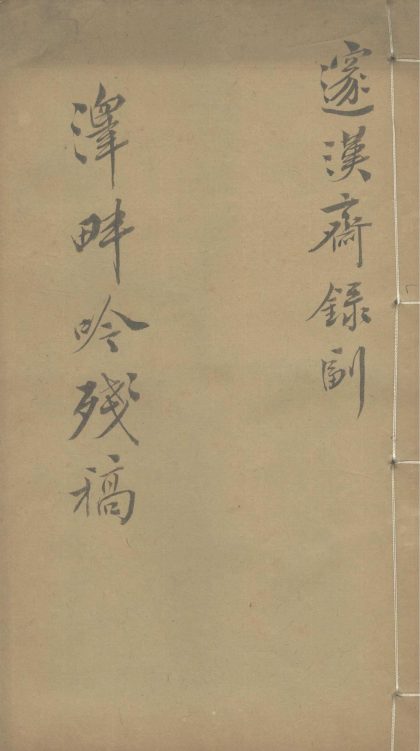 邃漢齋錄副
澤畔吟殘稿